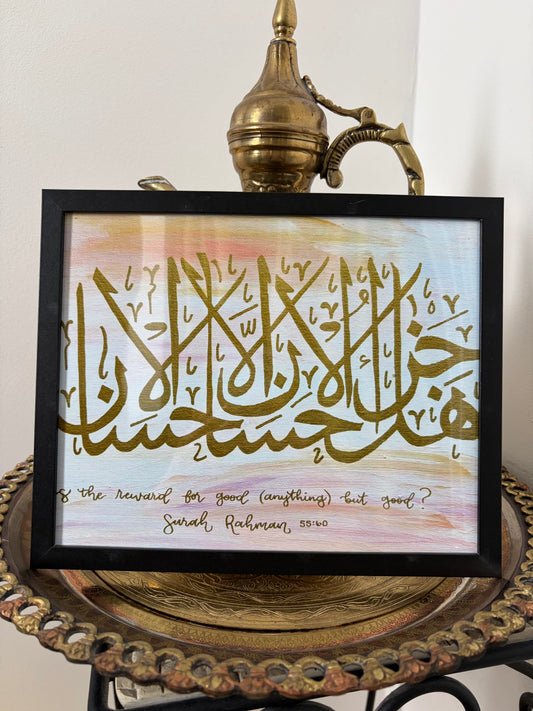 هل جزاء الإحسان إلا الإحسان
s the reward for good (anything) but good?
Surah Rahman 55:60